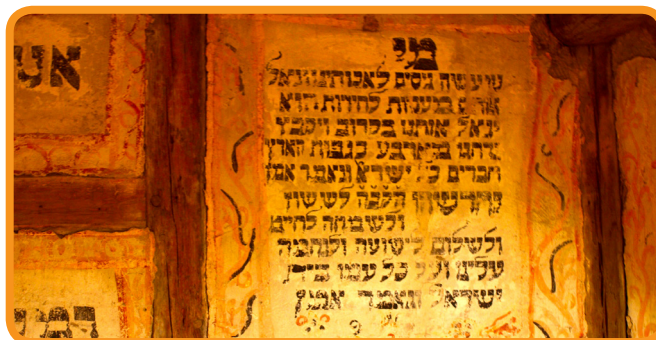 מי
נסים לאבותינו וגאל
לחירות הוא
יגאל אותנו בקרוב ויקבץ
מארבע כנפות הארץ
חברים כל ישראל ונאמר אמן
לששון
ולשמחה לחיים
ולשלום לישועה ולנחמה
עלינו ועל כל עמו בית
ישראל ונאמר אמן